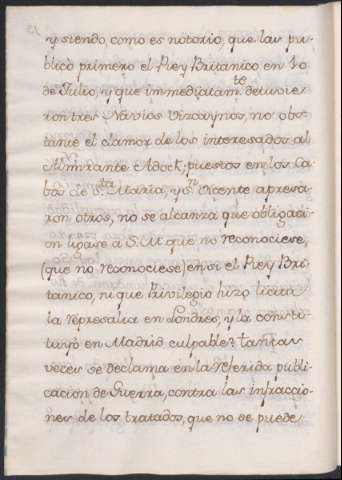 y siendo, como es notorio, que las pu-
blicò primero el Rey Britanico en 10
de Julio, y que immediatam.te detuvie-
ron tres Navios Vizcaynos, no obs-
tante el clamor de los interesados al
Almirante Adock, puestos en los Ca-
bos de S.ta Maria, y S.n Vicente apresa-
ron otros, no se alcanza que obligaci-
on ligase à S. M. que no reconociese,
(que no reconociese) en si el Rey Bri-
tanico, ni que Privilegio hizo licita
la represalia en Londres, y la consti-
tuyò en Madrid culpable? tantas
veces se declama en la referida publi-
cacion de Guerra, contra las infraccio-
nes de los tratados, que no se puede